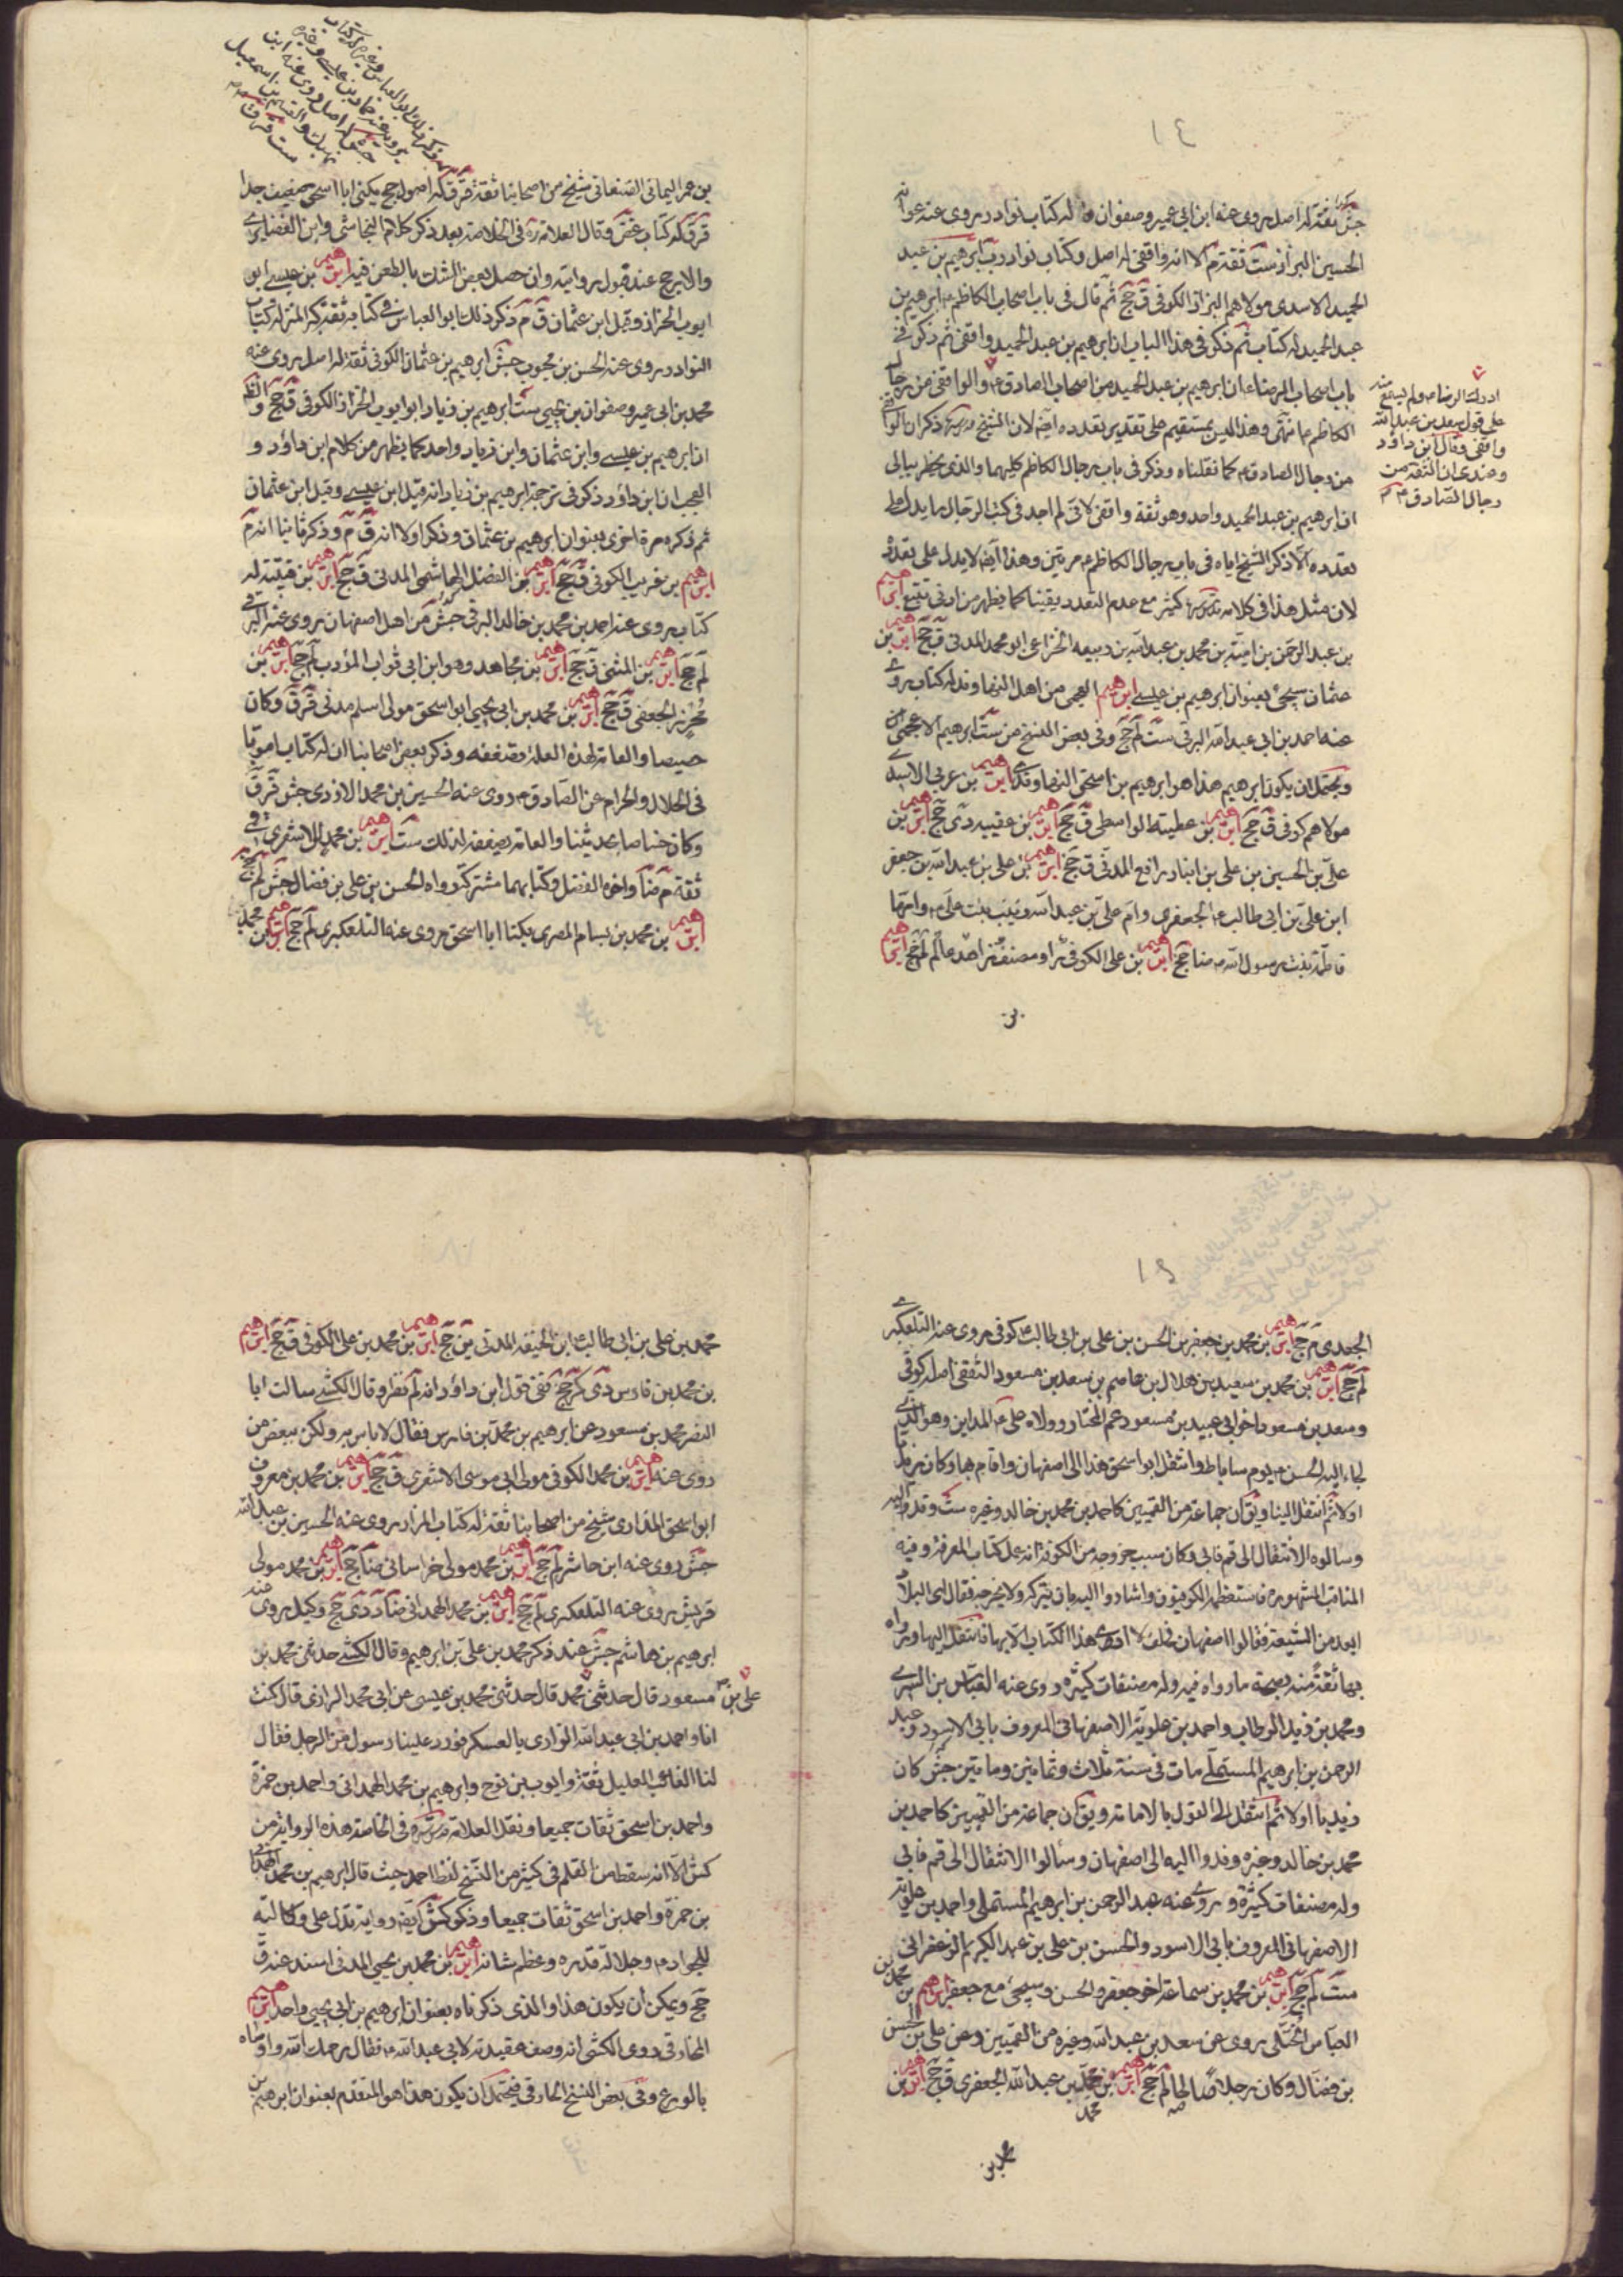 ١٤
جش ثقة له اصل يروى عنه ابن ابي عمير وصفوان له كتاب نوادر يروى عنه
الحسين البزاز ست ثقة م الا انه واقفى له اصل وكتاب نوادر ابرهيم بن عبد
الحميد الاسدى مولاهم البزاز الكوفى ق جخ ثم قال فى باب اصحاب الكاظم ع ابرهيم بن
عبد الحميد له كتاب ثم ذكر فى هذا الباب ان ابرهيم بن عبد الحميد واقفى ثم ذكر فى
باب اصحاب الرضا ع ان ابرهيم بن عبد الحميد من اصحاب الصادق ع والواقفى من رجال
الكاظم ع انتهى وهذا ليس بمستقيم على تقدير تعدده ايضا لان الشيخ ذكر ان
من رجال الصادق ع كما نقلناه وذكر فى باب رجال الكاظم كليهما والذى يخطر ببالى
ان ابرهيم بن عبد الحميد واحد وهو ثقة واقفى لانى لم اجد فى كتب الرجال ما يدل على
تعدده الا ذكر الشيخ اياه فى باب رجال الكاظم ع مرتين وهذا ايضا لا يدل على تعدده
لان مثل هذا فى كلامه كثير مع عدم التعدد يقينا كما يظهر من ادنى تتبع ابرهيم
بن عبد الرحمن بن امية بن محمد بن عبد الله بن ربيعه الخزاعى ابو محمد المدنى ق جخ ابرهيم بن
عثمان سيجئ بعنوان ابرهيم بن عيسى ابرهيم العجمى من اهل النهاوند له كتاب روى
عنه احمد بن ابى عبد الله البرقى ست لم جخ وفى بعض النسخ من ست ابرهيم الاعجمى
ويحتمل ان يكون ابرهيم هذا هو ابرهيم بن اسحق النهاوندى ابرهيم بن عربى الاسدى
مولاهم كوفى ق جخ ابرهيم بن عطيته الواسطى ق جخ ابرهيم بن عقبيه دى جخ ابرهيم بن
على بن الحسين بن على بن ابى رافع المدنى ق جخ ابرهيم بن على بن عبد الله بن جعفر
ابن على بن ابى طالب ع الجعفرى وام على بن عبد الله زينب بنت على ع وامها
فاطمة بنت رسول الله ص ضا جخ ابرهيم بن على الكوفى راو مصنف زاهد عالم لم جخ ابرهيم
بن
ادرك الرضا ع ولم يسمع منه
على قول سعد بن عبد الله
واقفى وقال ابن داؤد
وعندى ان الثقة من
رجال الصادق ع
بن عمر اليمانى الصنعانى شيخ من اصحابنا ثقة ق ق له اصول جخ يكنى ابا اسحق ضعيف جدا
ق ق له كتاب غض وقال العلامة ره فى الخلاصة بعد ذكر كلام النجاشى وابن الغضايرى
والارجح عند قبول روايته وان حصل بعض الشك بالطعن فيه ابرهيم بن عيسى ابو
ايوب الخزاز وقيل ابن عثمان ق م ذكر ذلك ابو العباس فى كتابه ثقة كبير المنزلة له كتاب
النوادر يروى عنه الحسن بن محبوب جش ابرهيم بن عثمان الكوفى ثقة له اصل يروى عنه
محمد بن ابى عمير وصفوان بن يحيى ست ابرهيم بن زياد ابو ايوب الخزاز الكوفى ق جخ
ان ابرهيم بن عيسى وابن عثمان وابن زياد واحد كما يظهر من كلام ابن داؤد و
العجب ان ابن داؤد ذكر فى ترجمة ابرهيم بن زياد انه قيل ابن عيسى وقيل ابن عثمان
ثم ذكره مرة اخرى بعنوان ابرهيم بن عثمان وذكر اولا انه ق م وذكر ثانيا انه م
ابرهيم بن غريب الكوفى ق جخ ابرهيم بن الفضل الهاشمى المدنى ق جخ ابرهيم بن قتيبة له
كتاب يروى عنه احمد بن محمد بن خالد البرقى جش من اهل اصفهان روى عنه البرقى
لم جخ ابرهيم بن المثنى ق جخ ابرهيم بن مجاهد وهو ابن ابى ثواب المؤدب لم جخ ابرهيم بن
محرز الجعفى ق جخ ابرهيم بن محمد بن ابى يحيى ابو اسحق مولى اسلم مدنى ق ق وكان
خصيصا والعامة لهذه العلة تضعفه وذكر بعض اصحابنا ان له كتابا مبوبا
فى الحلال والحرام عن الصادق ع روى عنه الحسين بن محمد الازدى جش ق ق
وكان خاصا بحديثنا والعامة تضعفه لذلك ست ابرهيم بن محمد الاشعرى قمى
ثقة م ضا واخوه الفضل وكتابهما مشترك رواه الحسن بن على بن فضال جش لم جخ
ابرهيم بن محمد بن بسام المصرى يكنا ابا اسحق روى عنه التلعكبرى لم جخ ابرهيم بن محمد
١٥
الجعدى م جخ ابرهيم بن محمد بن جعفر بن الحسن بن على بن ابى طالب ع كوفى روى عنه التلعكبرى
لم جخ ابرهيم بن محمد بن سعيد بن هلال بن عاصم بن سعد بن مسعود الثقفى اصله كوفى
وسعد بن مسعود اخو ابى عبيد بن مسعود عم المختار وولاه على ع المداين وهو الذى
لجاء اليه الحسن ع يوم ساباط وانتقل ابو اسحق هذا الى اصفهان واقام بها وكان زيديا
اولا ثم انتقل الينا ويق ان جماعة من القميين كاحمد بن محمد بن خالد وغيره ست وفدوا اليه
وسالوه الانتقال الى قم فابى وكان سبب خروجه من الكوفة انه عمل كتاب المعرفة وفيه
المناقب المشهوره فاستعظمه الكوفيون واشاروا اليه بان يتركه ولا يخرجه فقال اى البلاد
ابعد من الشيعة فقالوا اصفهان فحلف لا اروى هذا الكتاب الا بها فانتقل اليها ورواه
بها ثقة منه بصحة ما رواه فيه وله مصنفات كثيره روى عنه العباس بن السرى
ومحمد بن زيد الرطاب واحمد بن علوية الاصفهانى المعروف بابى الاسود وعبد
الرحمن بن ابرهيم المستملى مات فى سنة ثلاث وثمانين ومايتين جش كان
زيديا اولا ثم انتقل الى القول بالامامة ويق ان جماعة من القميين كاحمد بن
محمد بن خالد وغيره وفدوا اليه الى اصفهان وسألوا الانتقال الى قم فابى
وله مصنفات كثيرة وروى عنه عبد الرحمن بن ابرهيم المستملى واحمد بن علوية
الاصفهانى المعروف بابى الاسود والحسن بن على بن عبد الكريم الزعفرانى
ست لم جخ ابرهيم بن محمد بن سماعة اخو جعفر والحسن وسيجئ مع جعفر ابرهيم بن محمد بن
العباس الختلى يروى عن سعد بن عبد الله وغيره من القميين وعن على بن الحسن
بن فضال وكان رجلا صالحا لم جخ ابرهيم بن محمد بن عبد الله الجعفرى ق جخ ابرهيم بن
محمد بن
محمد بن على بن ابى طالب ع ابن الحنيفه المدنى ين جخ ابرهيم بن محمد بن على الكوفى ق جخ ابرهيم
بن محمد بن فارس دى كر جخ ففى قول ابن داؤد انه لم نظر وقال الكشى سالت ابا
النضر محمد بن مسعود عن ابرهيم بن محمد بن فارس فقال لا باس به ولكن ببعض من
روى عنه ابرهيم بن محمد الكوفى مولى ابى موسى الاشعرى ق جخ ابرهيم بن محمد بن معروف
ابو اسحق المذارى شيخ من اصحابنا ثقة له كتاب المزار يروى عنه الحسين بن عبيد الله
جش روى عنه ابن حاشر لم جخ ابرهيم بن محمد مولى خراسانى ضا جخ ابرهيم بن محمد مولى
قريش روى عنه التلعكبرى لم جخ ابرهيم بن محمد الهمدانى ضا د دى جخ وكيل روى عنه
ابرهيم بن هاشم جش عند ذكر محمد بن على بن ابرهيم وقال الكشى حدثنى محمد بن
مسعود قال حدثنى على بن محمد قال حدثنى محمد بن عيسى عن ابى محمد الرازى قال كنت
انا واحمد بن ابى عبد الله الوارى بالعسكر فورد علينا رسول من الرجل فقال
لنا الغائب العليل ثقة وايوب بن نوح وابرهيم بن محمد الهمدانى واحمد بن حمزة
واحمد بن اسحق ثقات جميعا ونقل العلامة فى الخاصة هذه الرواية من
كش الا انه سقط من القلم فى كثير من النسخ لفظ احمد حيث قال ابرهيم بن محمد الهمدانى
بن حمزة واحمد بن اسحق ثقات جميعا وذكر كش ايضا رواية تدل على وكالته
للجواد ع وجلالة قدره وعظم شانه ابرهيم بن محمد بن يحيى المدنى اسند عنه ق
جخ ويمكن ان يكون هذا والذى ذكرناه بعنوان ابرهيم بن ابى يحيى واحد ابرهيم
المخارقى روى الكشى انه وصف عقيدته لابى عبد الله ع فقال رحمك الله واوصاه
بالورع وفى بعض النسخ الحارقى فيحتمل ان يكون هذا هو المتقدم بعنوان ابرهيم بن